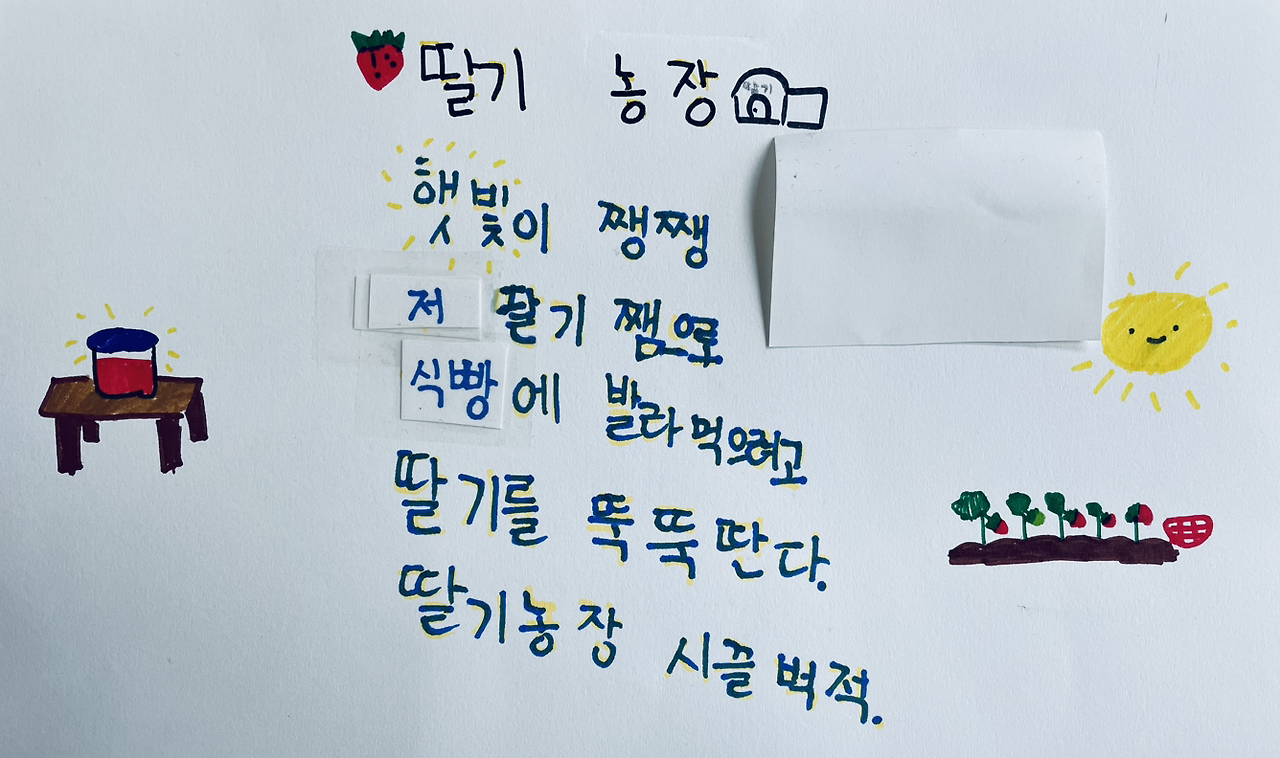 딸기 농장
햇빛이 쨍쨍
저 딸기 쨈으로
식빵에 발라먹으려고
딸기를 뚝뚝딴다.
딸기농장 시끌벅적.